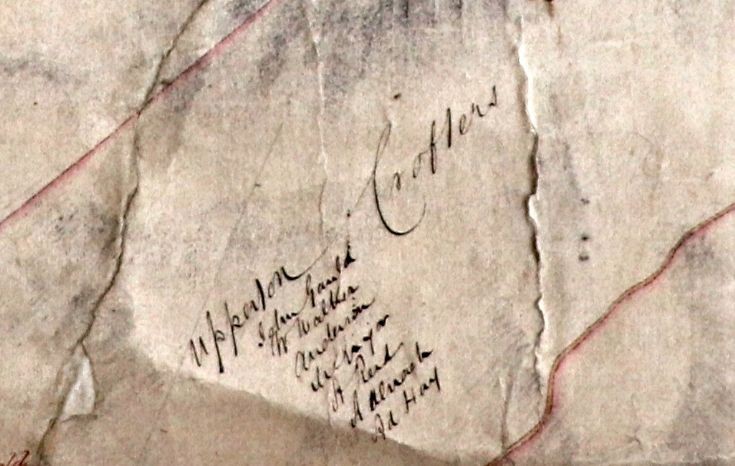 Upperton Crofters
John Gauld
W Walker
Anderson
A Reid
Ad Hay